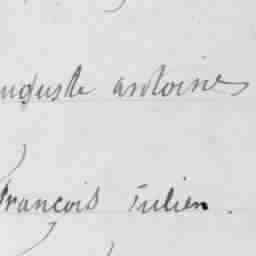 auguste antoine
francois Julien.